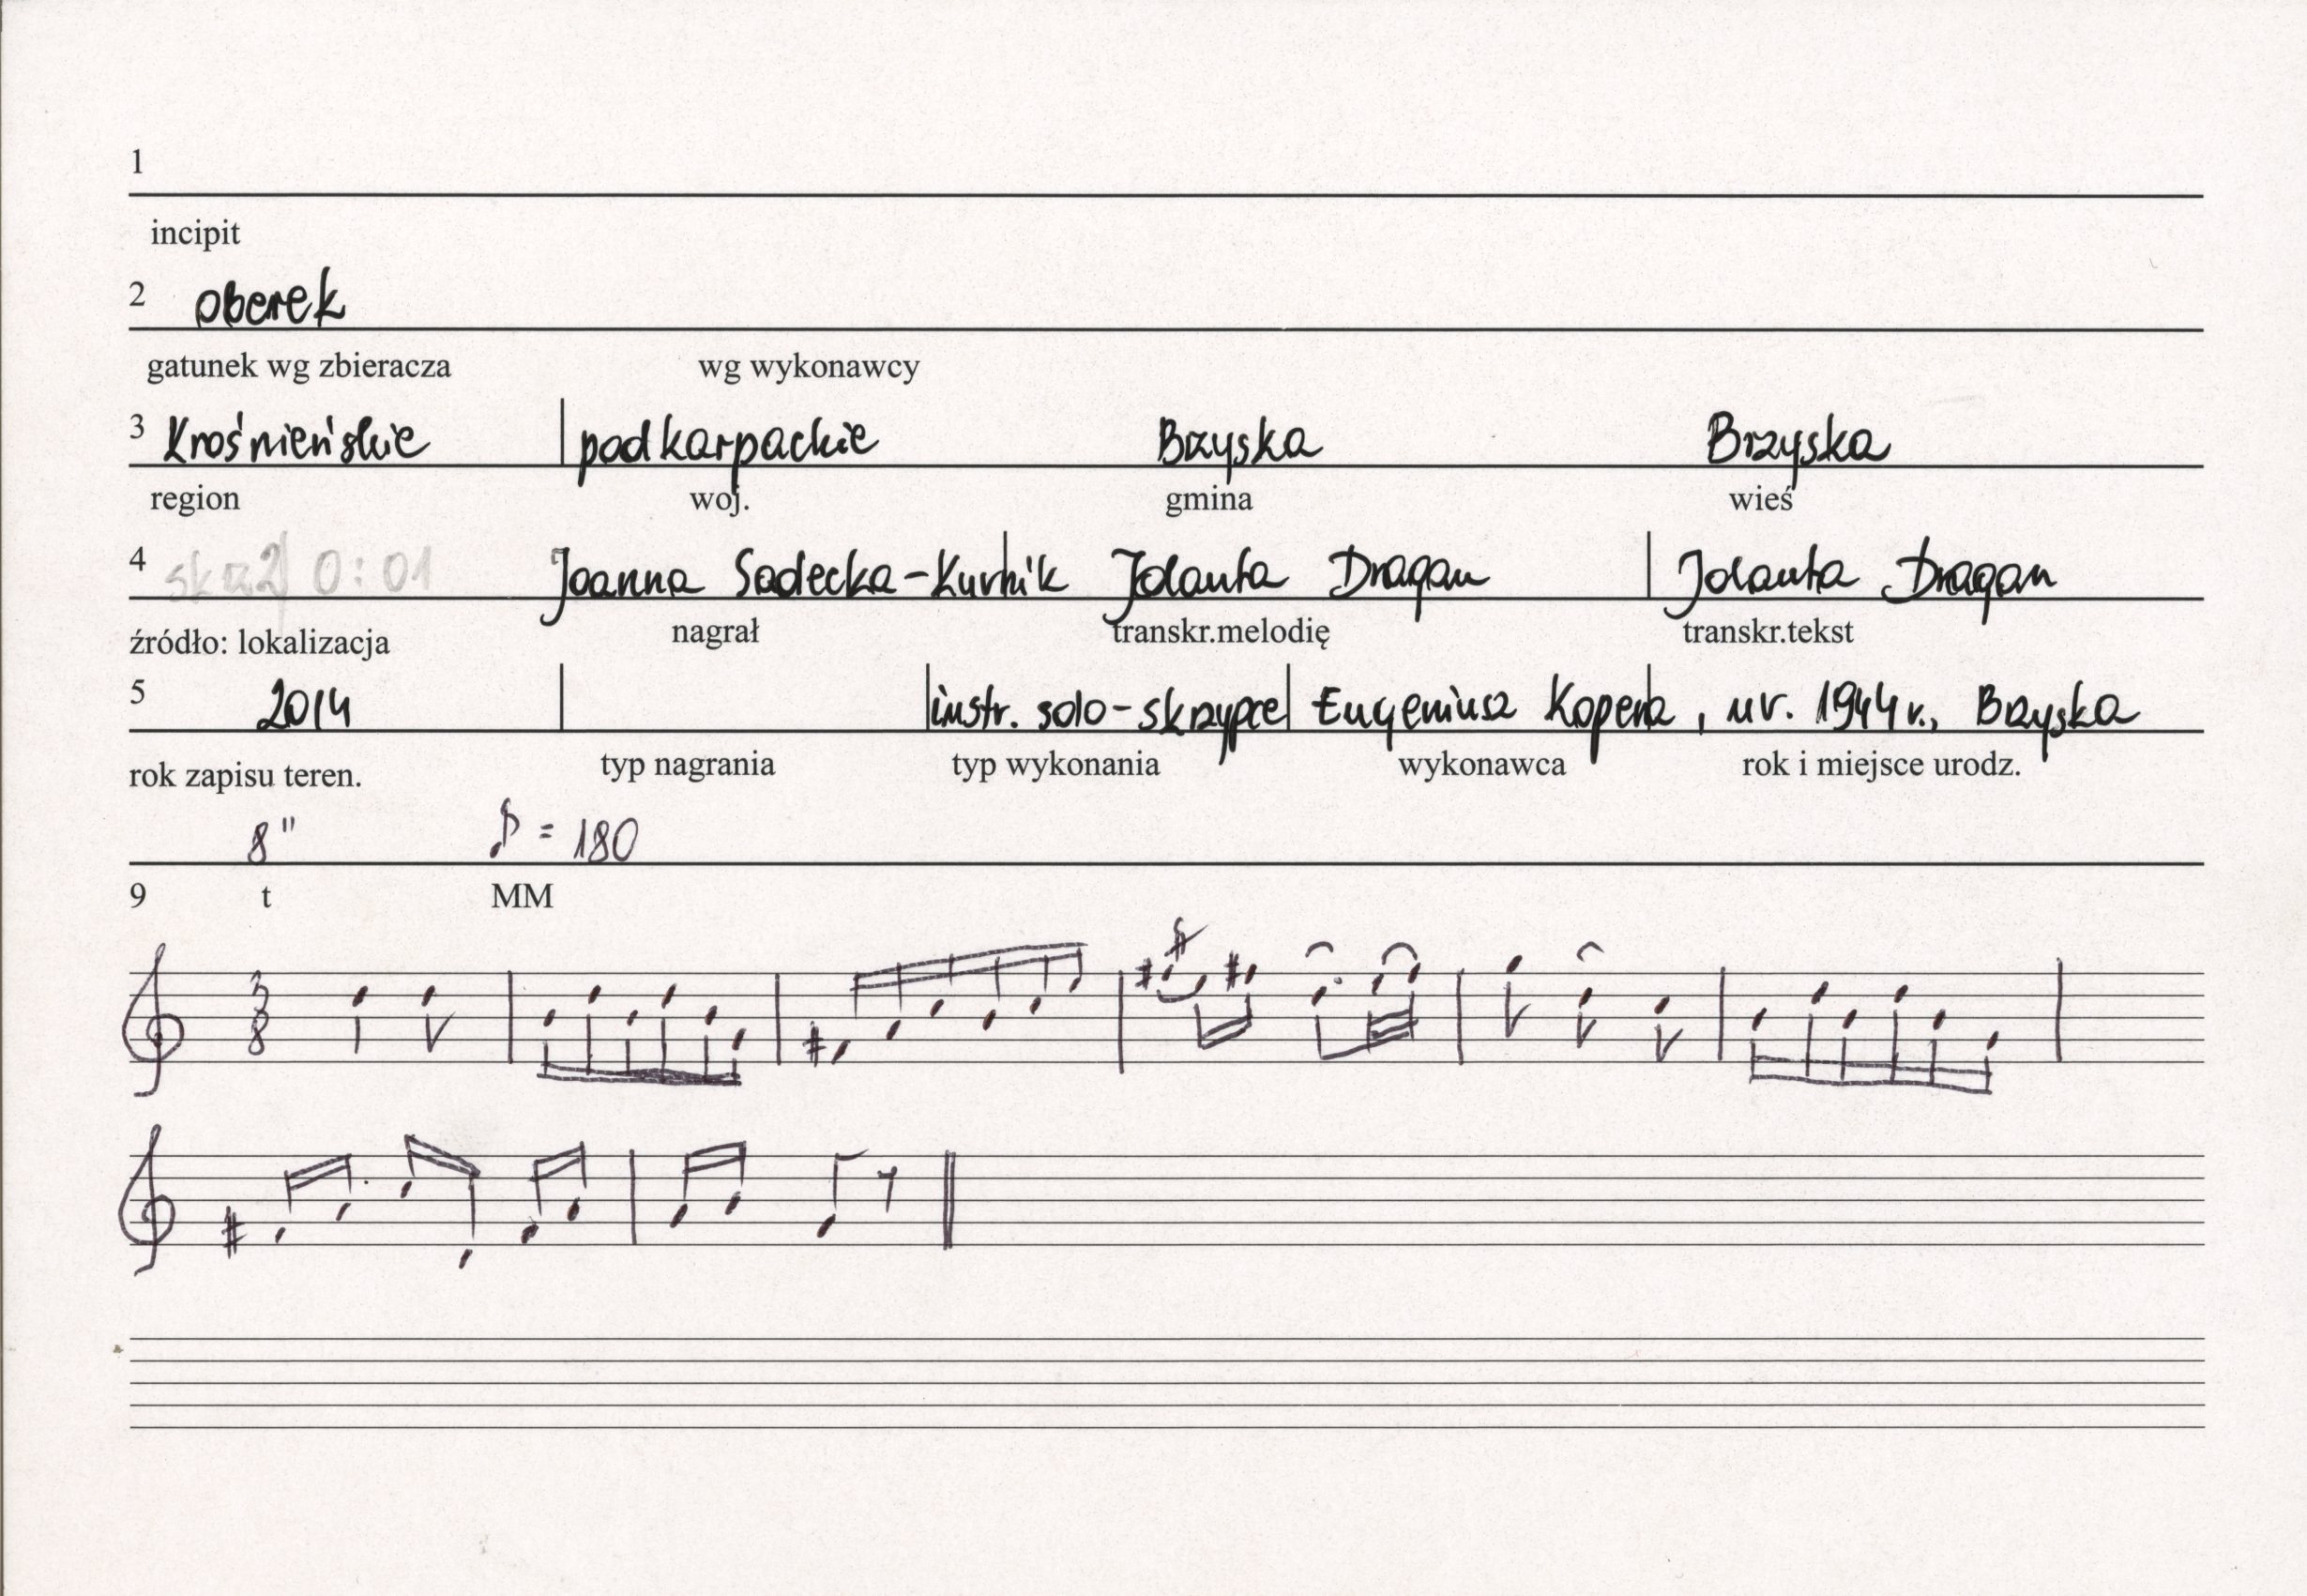 1
incipit
2 oberek
gatunek wg zbieracza wg wykonawcy
3 Krośnieńskie podkarpackie Brzyska Brzyska
region woj. gmina wieś
4 0:01 Joanna Sadecka-Kurnik Jolanta Dragan Jolanta Dragan
źródło: lokalizacja nagrał transkr.melodię transkr.tekst
5 2014 instr. solo-skrzypce Eugeniusz Kopera, ur. 1944 r., Brzyska
rok zapisu teren. typ nagrania typ wykonania wykonawca rok i miejsce urodz.
8" ♪ = 180
9 t MM
3
8